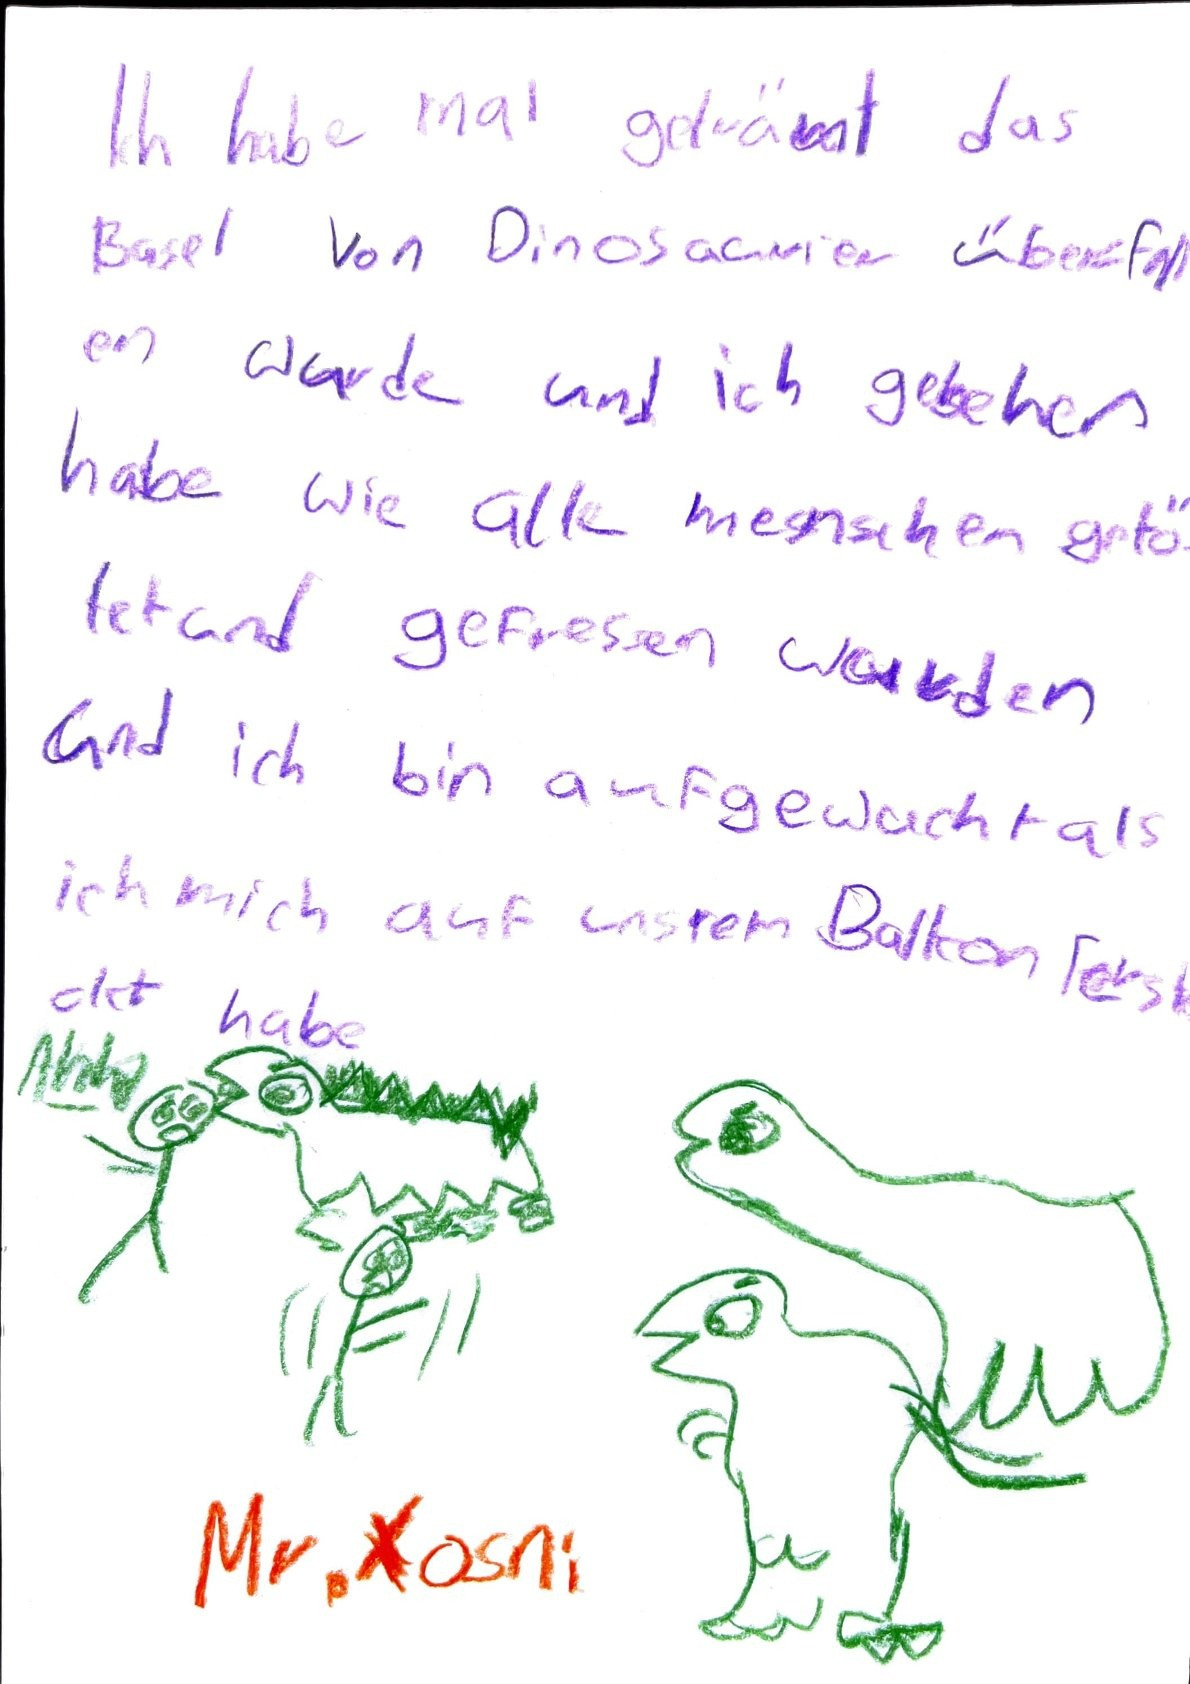 Ich habe mal geträumt das
Basel von Dinosaurier überfall
en wurde und ich gesehen
habe wie alle mesnschen getö-
tet und gefressen wurden
und ich bin aufgewacht als
ich mich auf unsrem Balkon ferste
ckt habe
Mr. Xosni